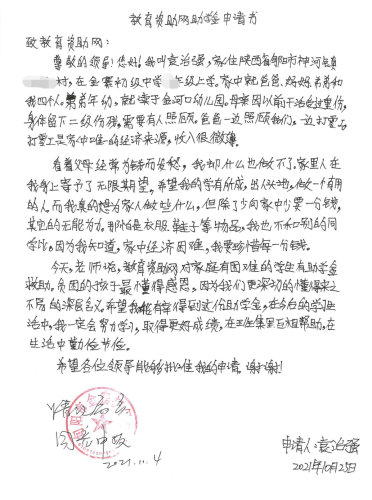 教育资助网助学金申请书
致教育资助网:
尊敬的领导!您好!我叫袁治强,家住陕西省郧市神河镇
村,在金寨初级中学 年级上学。家中就爸爸、妈妈、弟弟和
我四个人。弟弟年幼,就读于金河口幼儿园。母亲因以前干活受过重伤,
身体留下二级伤残,需要有人照顾。爸爸一边照顾我们,一边打零工,
打零工是家中唯一的经济来源,收入很微薄。
看着父母经常为钱而发愁,我却什么也做不了。家里人在
我身上寄予了无限期望,希望我的学有所成,出人头地,做一个有用
的人。而我真的想为家人做些什么,但除了少向家中少要一分钱,
其它的无能为力。那怕是衣服、鞋子等物品,我也不和别的同
学比。因为我知道,家中经济困难,我要珍惜每一分钱。
今天,老师说,教育资助网对家庭有困难的学生有助学金
救助。贫困的孩子最懂得感恩,因为我们更深切的懂得来之
不易的深层含义。希望我能有幸得到这份助学金,在今后的学习生
活中,我一定会努力学习,取得更好成绩,在班集里互相帮助,在
生活中勤俭节俭。
希望各位领导能够批准我的申请,谢谢!
情况属实
2021.11.4
申请人:袁治强
2021年10月25日